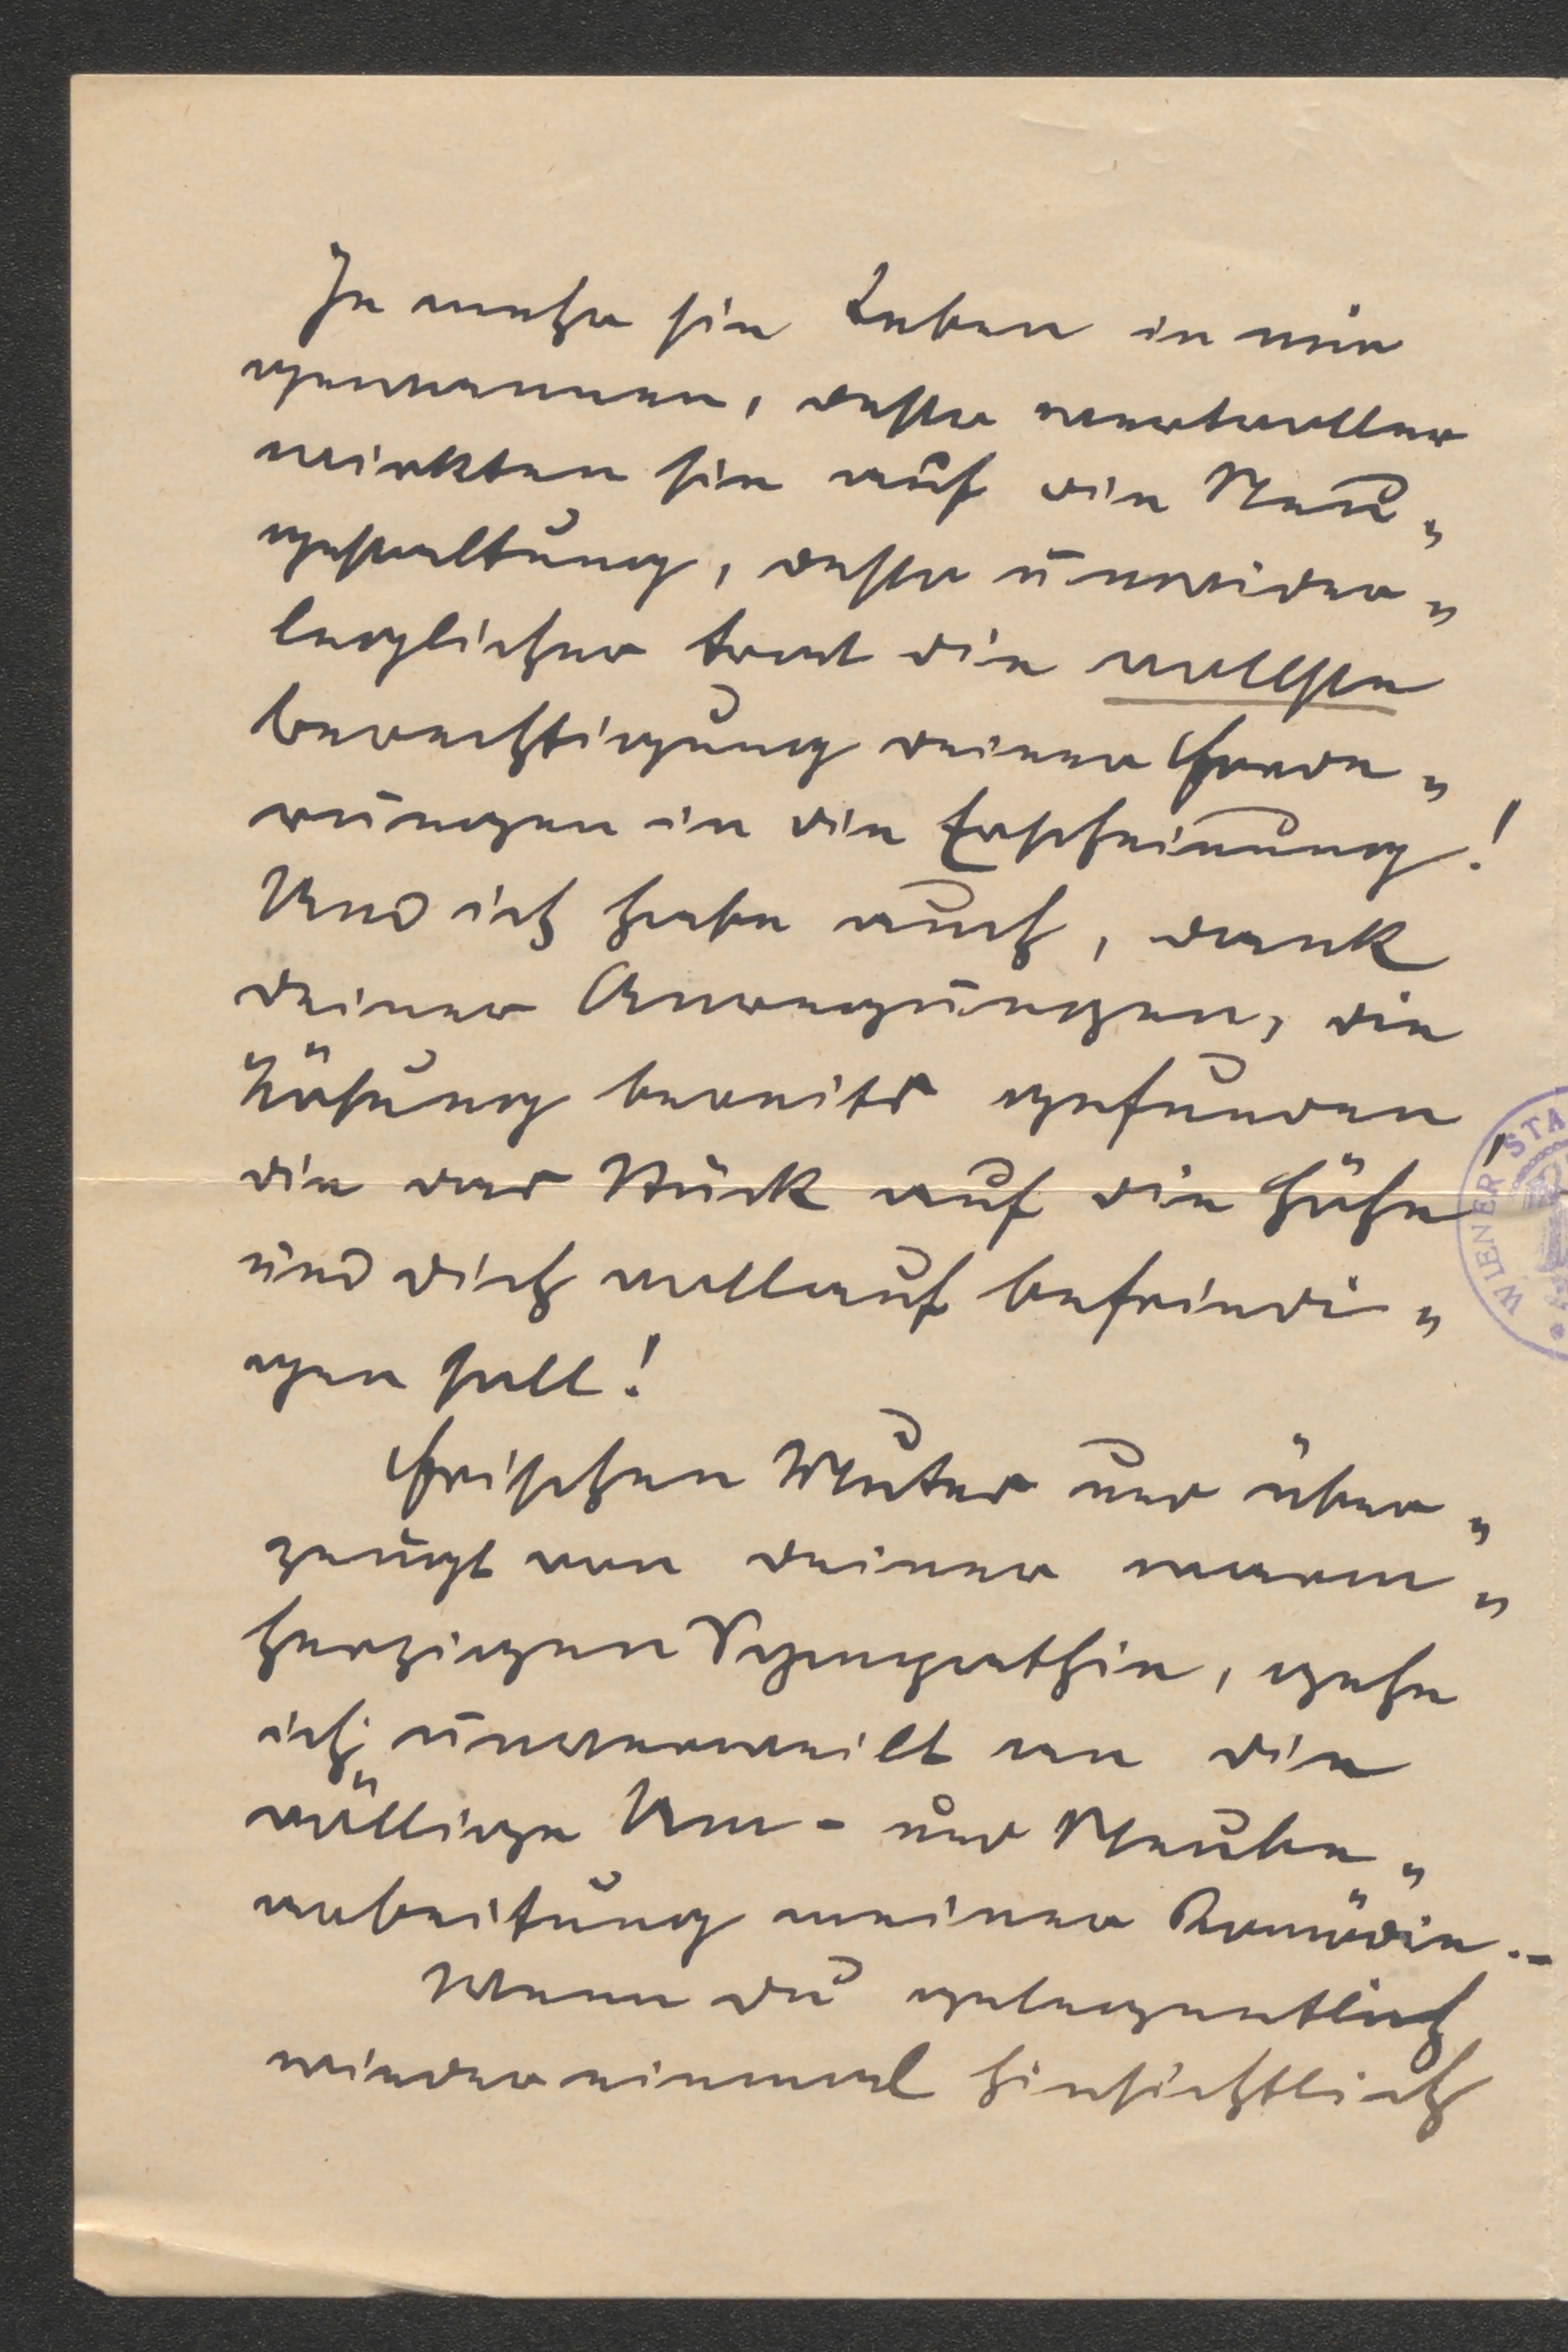 Je mehr sie Leben in mir
gewannen, desto wertvoller
wirkten sie auf die Neu„
gestaltung, desto unwider„
leglicher trat die vollste
Berechtigung deiner Forde„
rungen in die Erscheinung!
Und ich habe auch, dank
deiner Anregungen, die
Lösung bereits gefunden,
die das Stück auf die Höhe
und dich vollauf befriedi„
gen soll!
Frischen Mutes und über„
zeugt von deiner warm„
herzigen Sympathie, gehe
ich unverweilt an die
völlige Um- und Neube„
arbeitung meiner Komödie.–
Wenn du gelegentlich
wieder einmal hinsichtlich
WIENER STA